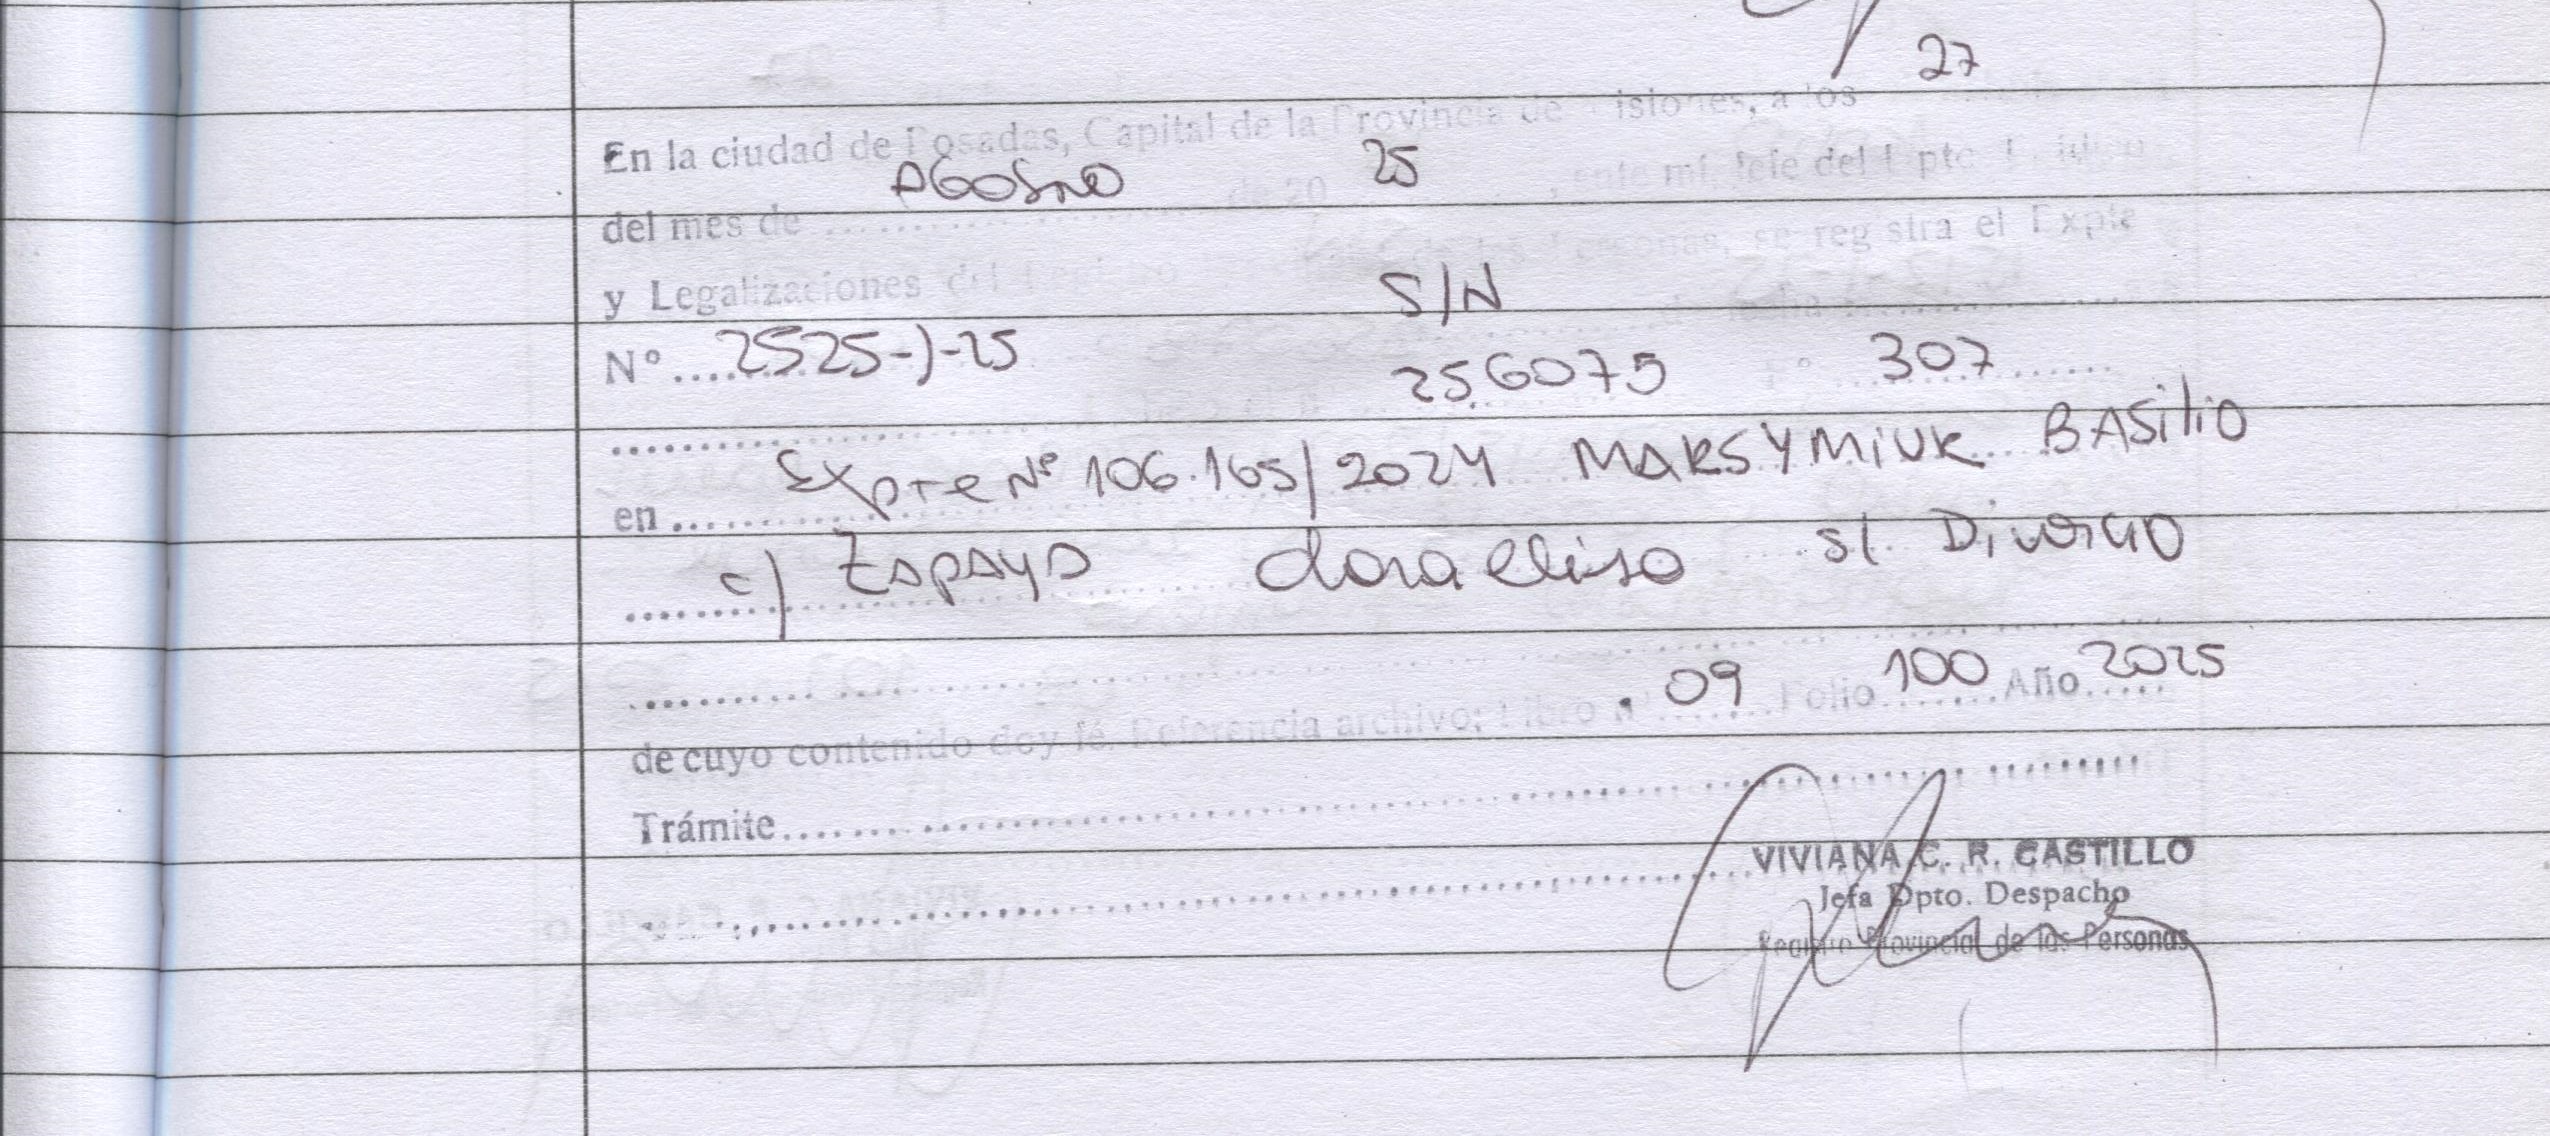 27
En la ciudad de Posadas, Capital de la Provincia de Misiones, a los
AGOSTO 25
del mes de ............ de 20 , ante mí Jefe del Dpto.
y Legalizaciones del de las Personas, se registra el Expte
S/N
Nº....2525-J-25
256075 Fº 307
Expte Nº 106.165/2024 MAKSYMIUK BASiliO
en ....
c/ ZAPAYA clara elisa s/ Divorcio
09 100 2025
de cuyo contenido doy fé. Referencia archivo; Libro nº.......Folio.......Año.....
Trámite............
VIVIANA C. R. CASTILLO
Jefa Dpto. Despacho
Registro Provincial de las Personas